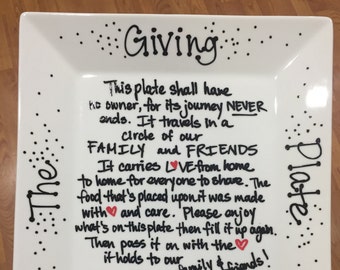 The
Giving
Plate
This plate shall have
no owner, for its journey NEVER
ends. It travels in a
circle of our
FAMILY and FRIENDS
It carries LOVE from home
to home for everyone to share. The
food that's placed upon it was made
with ♥ and care. Please enjoy
what's on this plate then fill it up again.
Then pass it on with the ♥
it holds to our family & friends!